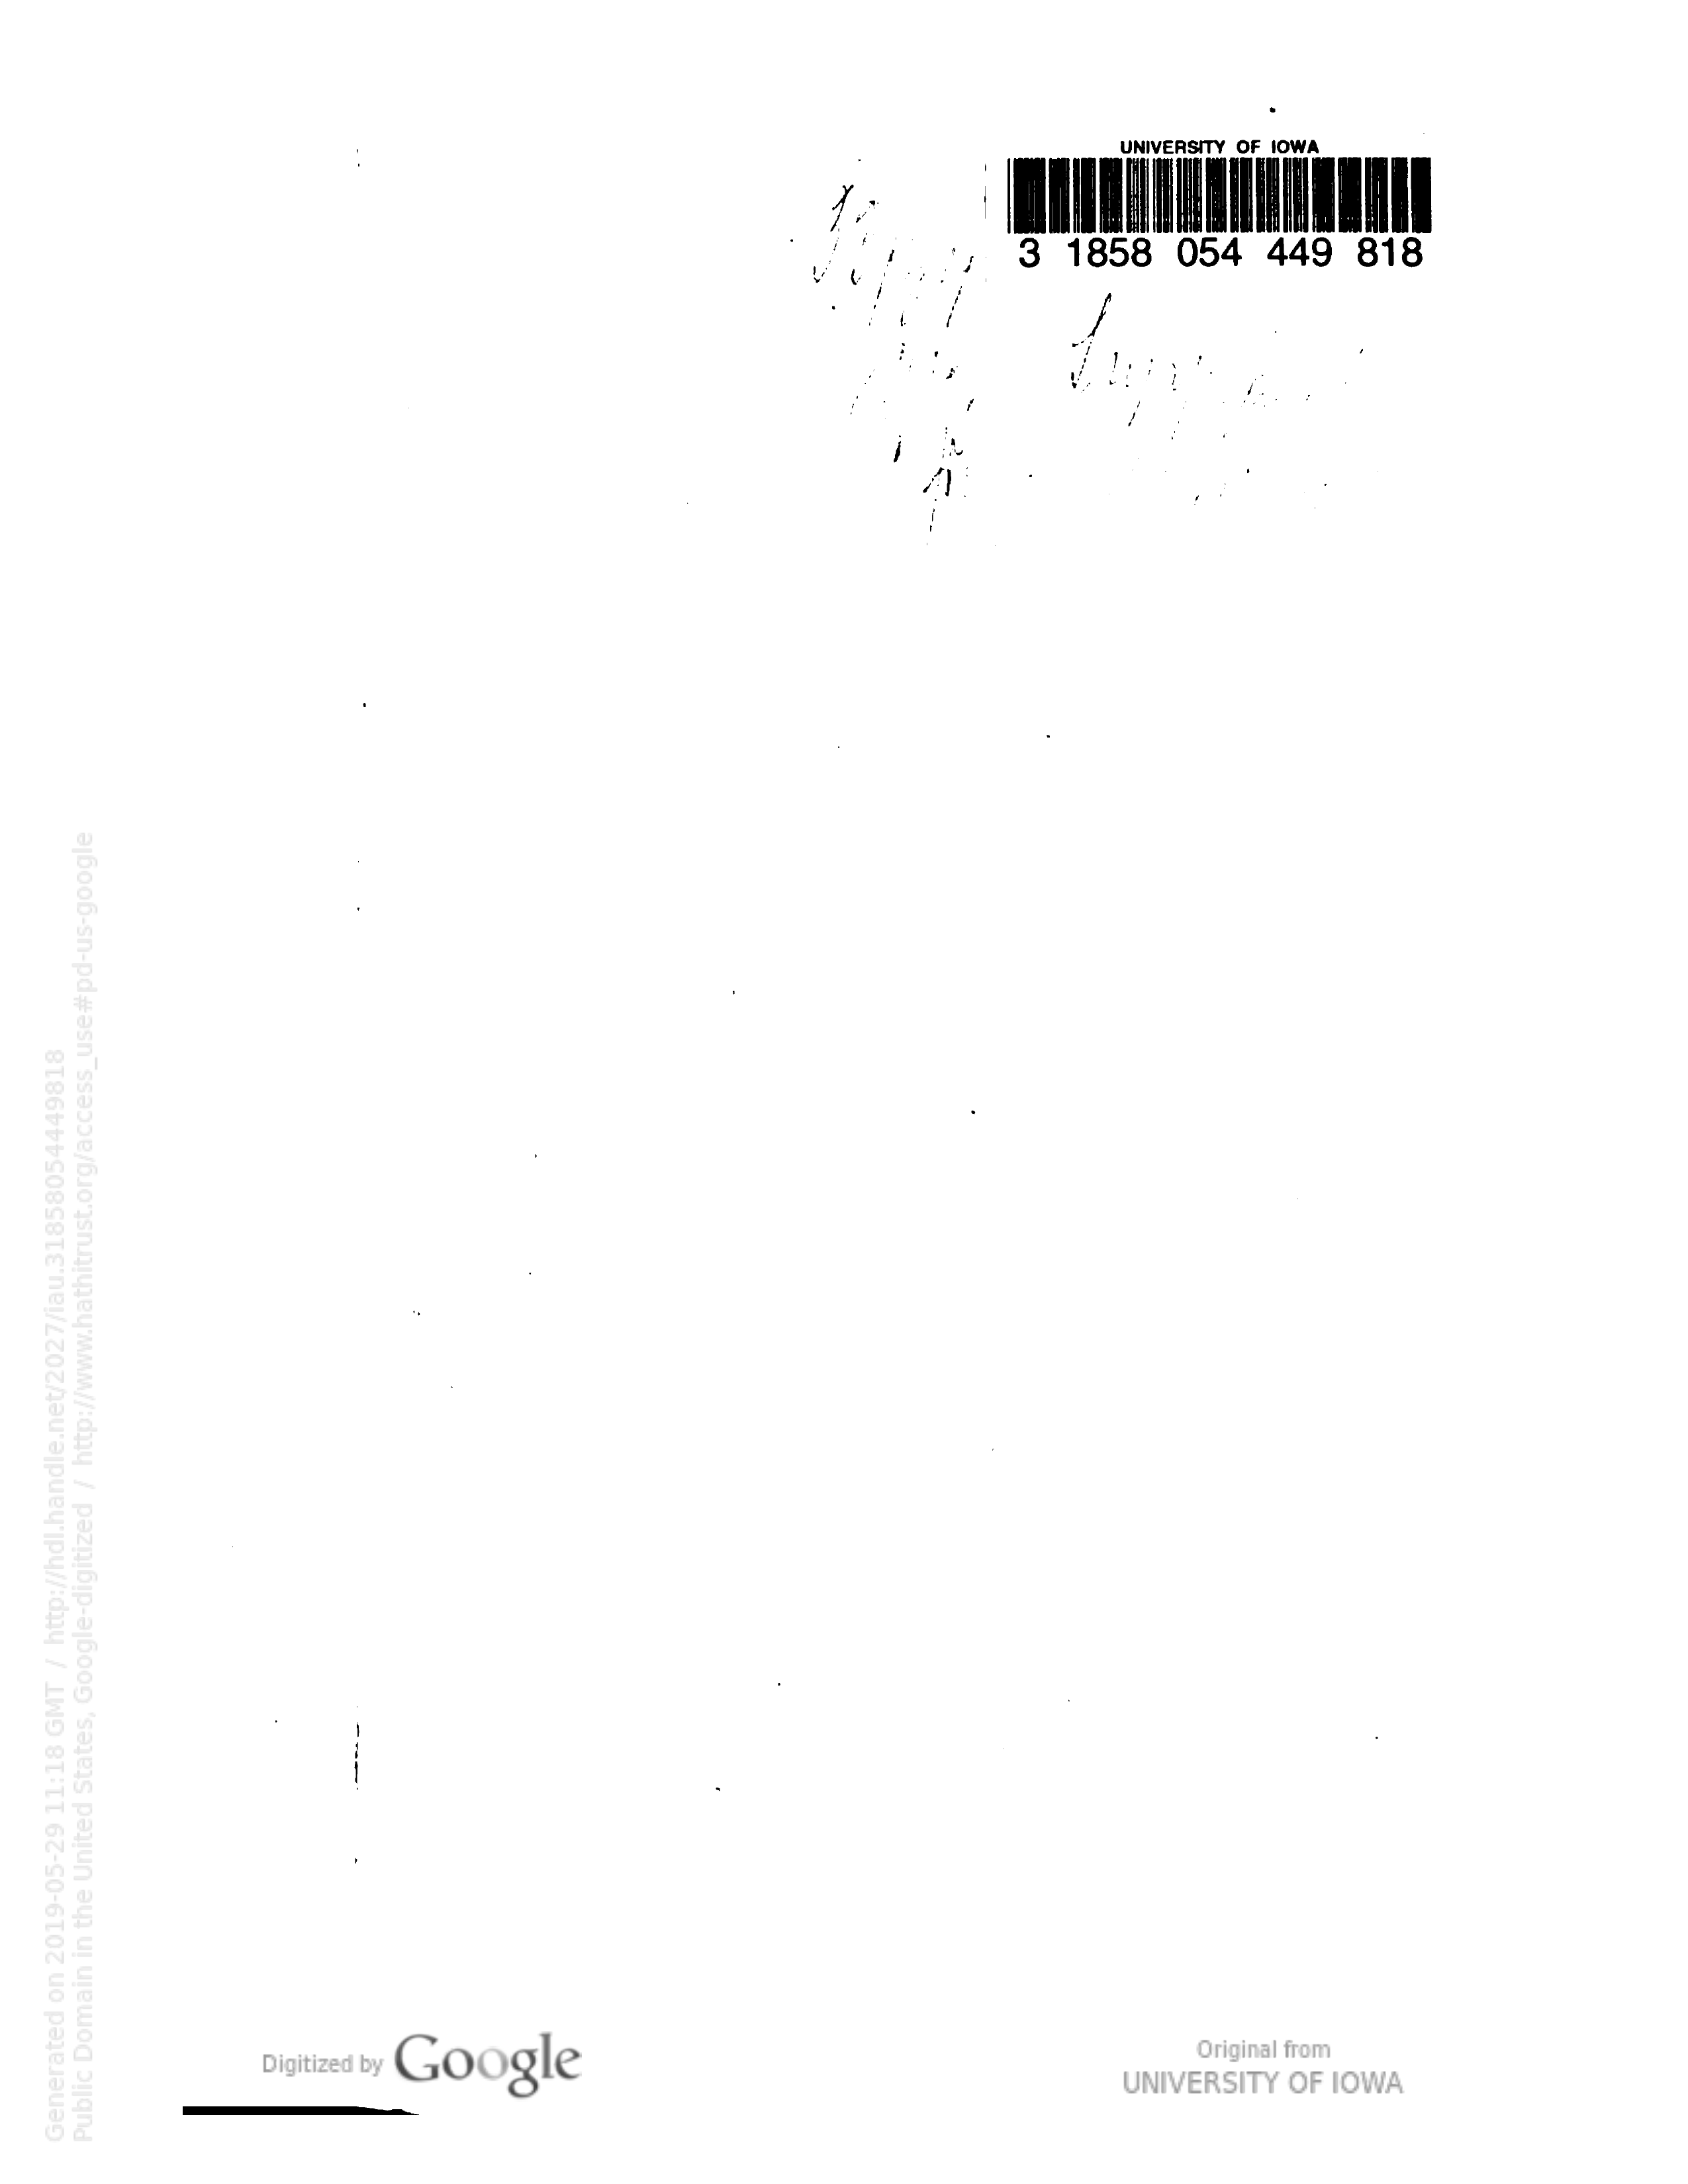 UNIVERSITY OF IOWA
3 1858 054 449 818
Generated on 2019-05-29 11:18 GMT / http://hdl.handle.net/2027/iau.31858054449818
Public Domain in the United States, Google-digitized / http://www.hathitrust.org/access_use#pd-us-google
Digitized by Google
Original from
UNIVERSITY OF IOWA